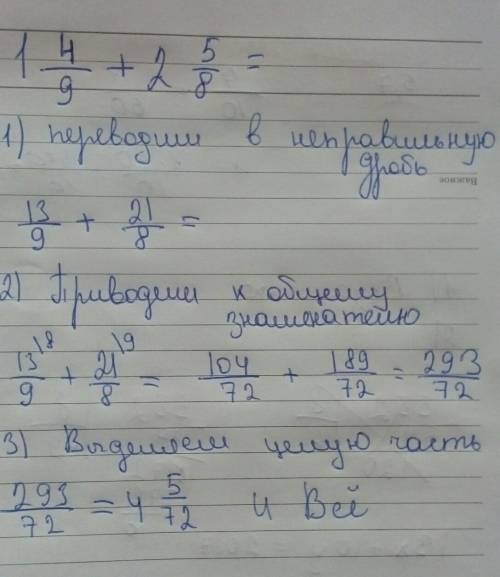 1 4/9 + 2 5/8 =
1) переводим в неправильную
дробь
Важное
13/9 + 21/8 =
2) Приводим к общему
знаменателю
13\8/9 + 21\9/8 = 104/72 + 189/72 = 293/72
3) Выделяем целую часть
293/72 = 4 5/72 и Всё